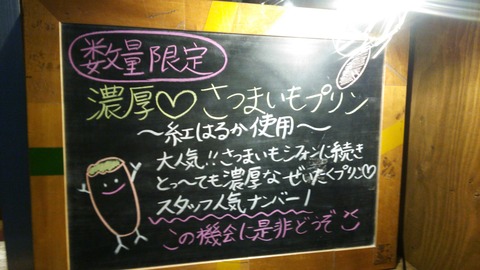 数量限定
濃厚♡さつまいもプリン
〜紅はるか使用〜
大人気!!さつまいもシフォンに続き
とっ〜ても濃厚なぜいたくプリン♡
スタッフ人気ナンバー1
この機会に是非どうぞ